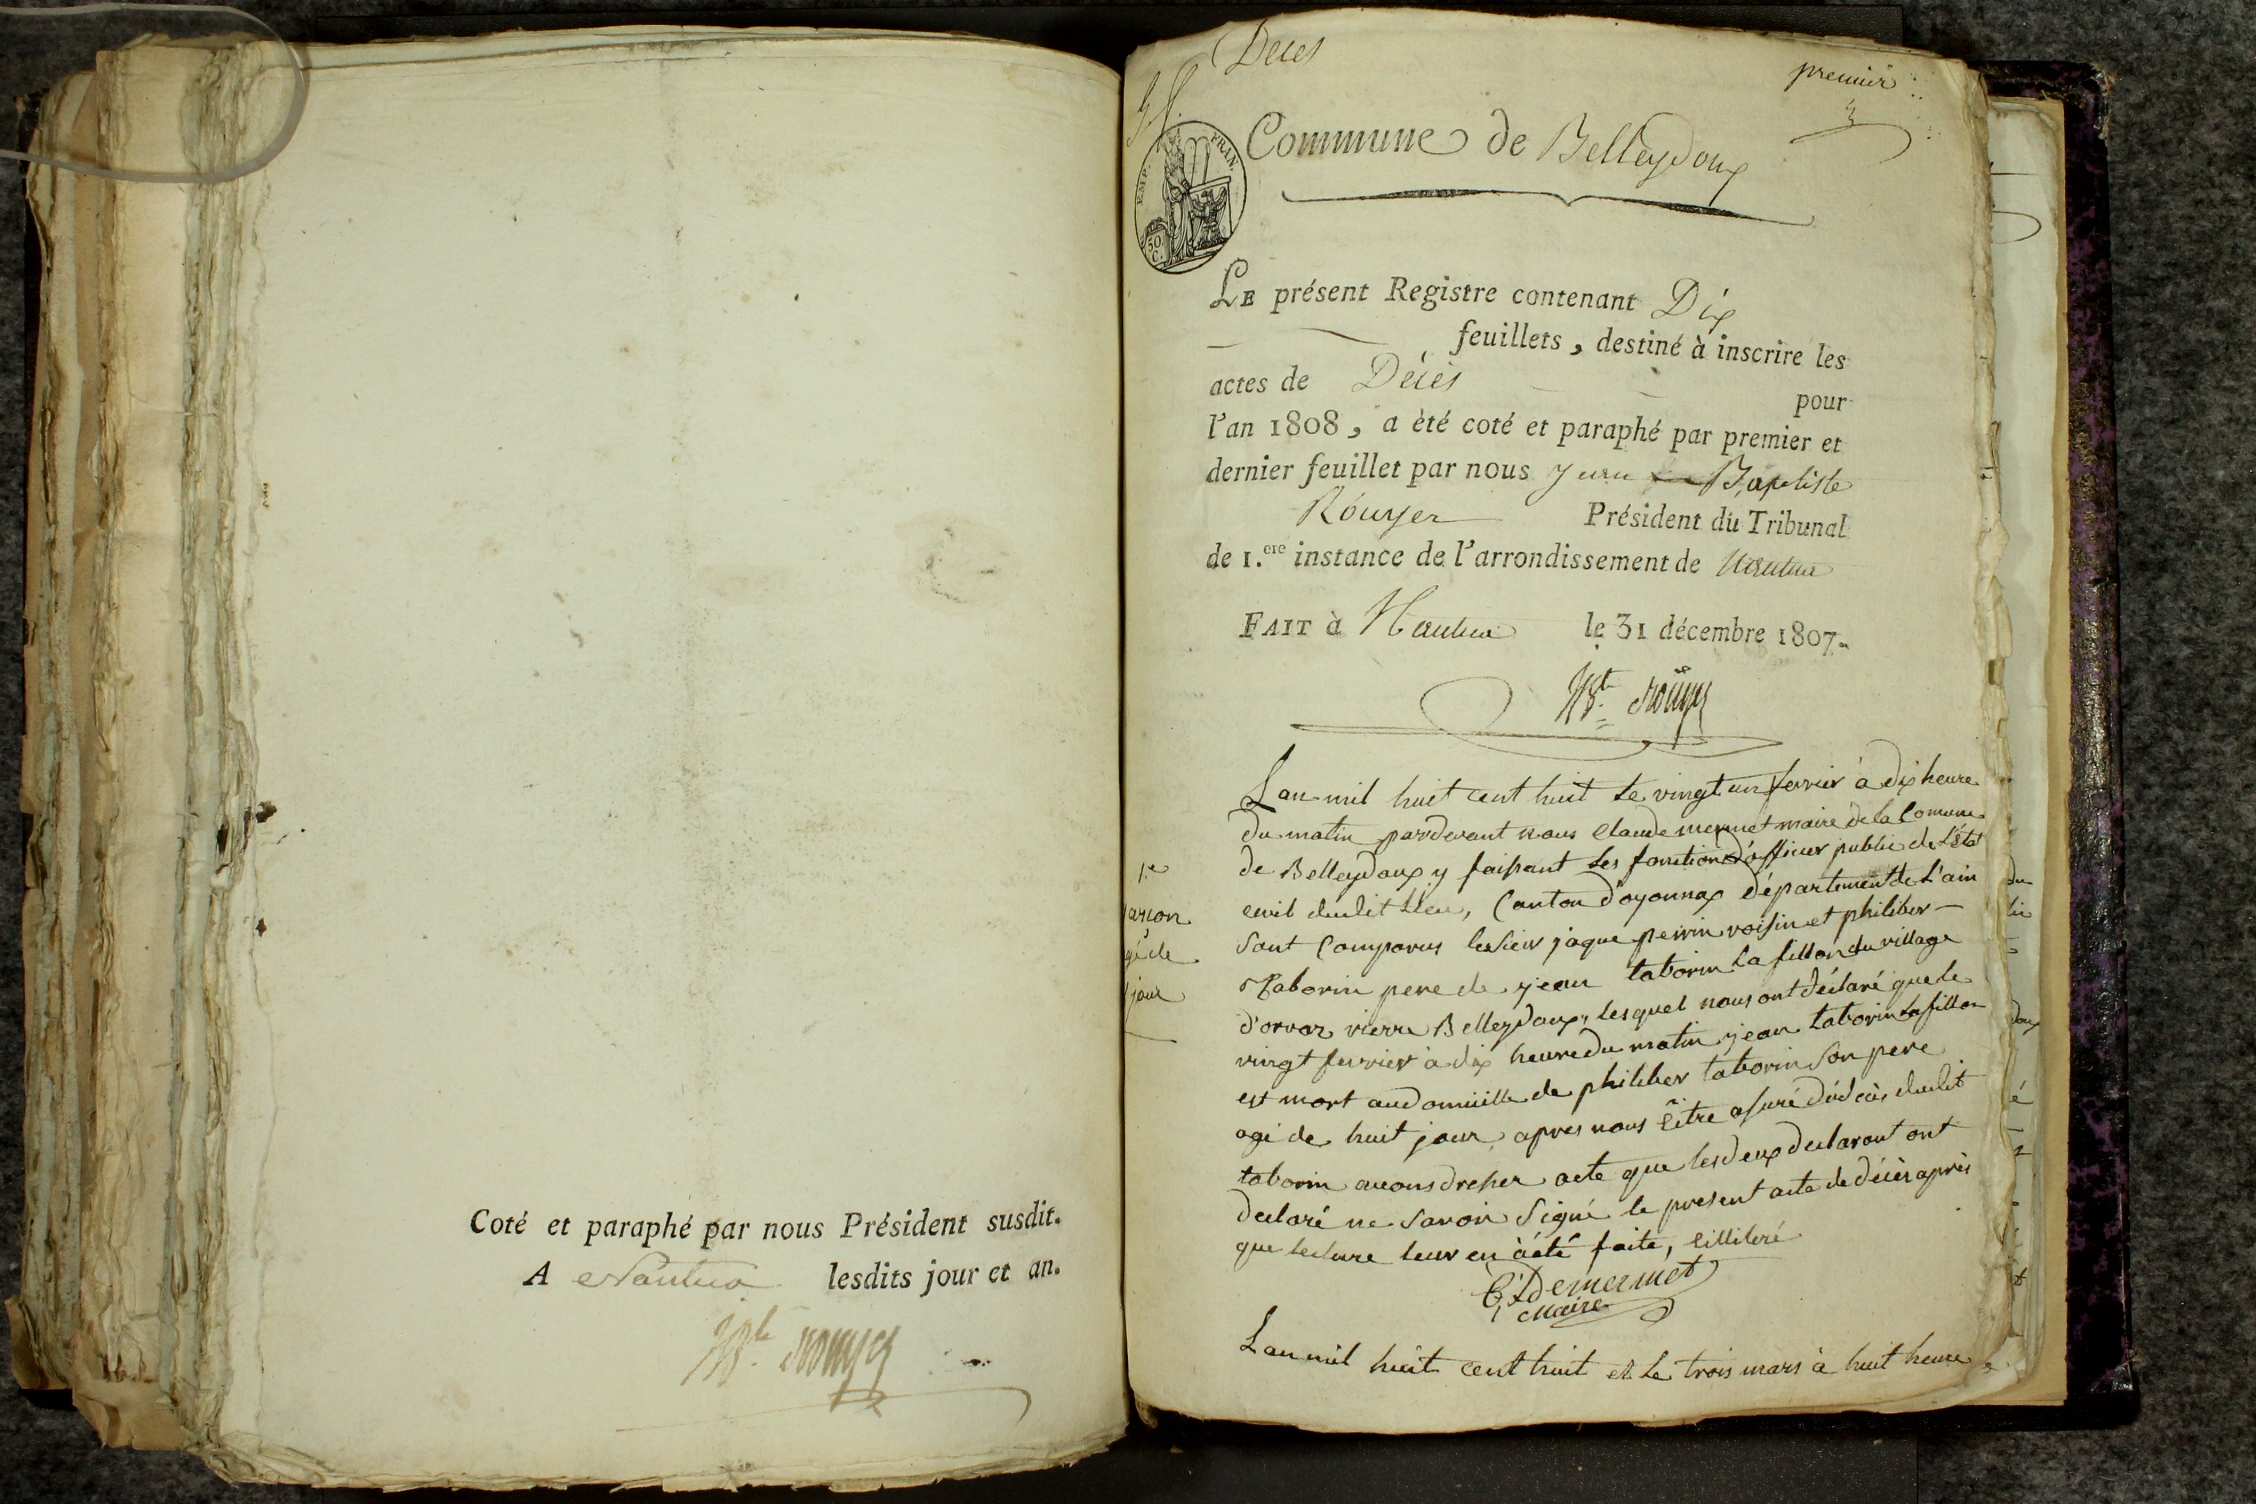 Coté et paraphé par nous Président susdit.
A Nantua lesdits jour et an.
JB.te Rouyer
Deces
premier
Commune de Belleydoux
EMP. FRAN.
50
C.
LE présent Registre contenant Dix
feuillets, destiné à inscrire les
actes de Décès
pour
l'an 1808, a été coté et paraphé par premier et
dernier feuillet par nous Jean Baptiste
Rouyer Président du Tribunal
de 1.ere instance de l'arrondissement de Nantua
FAIT à Nantua le 31 décembre 1807.
JB.te Rouyer
Lan mil huit cent huit le vingt un fevrier à dix heure
du matin pardevant nous Claude mermet maire de la Comune
de Belleydoux y faisant les fonction d'officier public de l'état
civil dudit lieu, Canton d'oyonnax département de l'ain
Sont Comparus les sieur jaque perrin voisin et philiber
Taborin pere de jean taborin la fillon du village
d'orvaz rierre Belleydoux, lesquel nous ont déclaré que le
vingt fevrier à dix heure du matin jean taborin la fillon
est mort au domicille de philiber taborin son pere
agé de huit jour, apres nous être asuré dud décès dudit
taborin avons dresser acte que les deux declarant ont
declaré ne savoir Signé le present acte de décès après
que lecture leur en à été faite, illiteré
Cl. Demermet
Maire
1.e
garçon
gé de
jour
Lan mil huit cent huit et le trois mars à huit heure